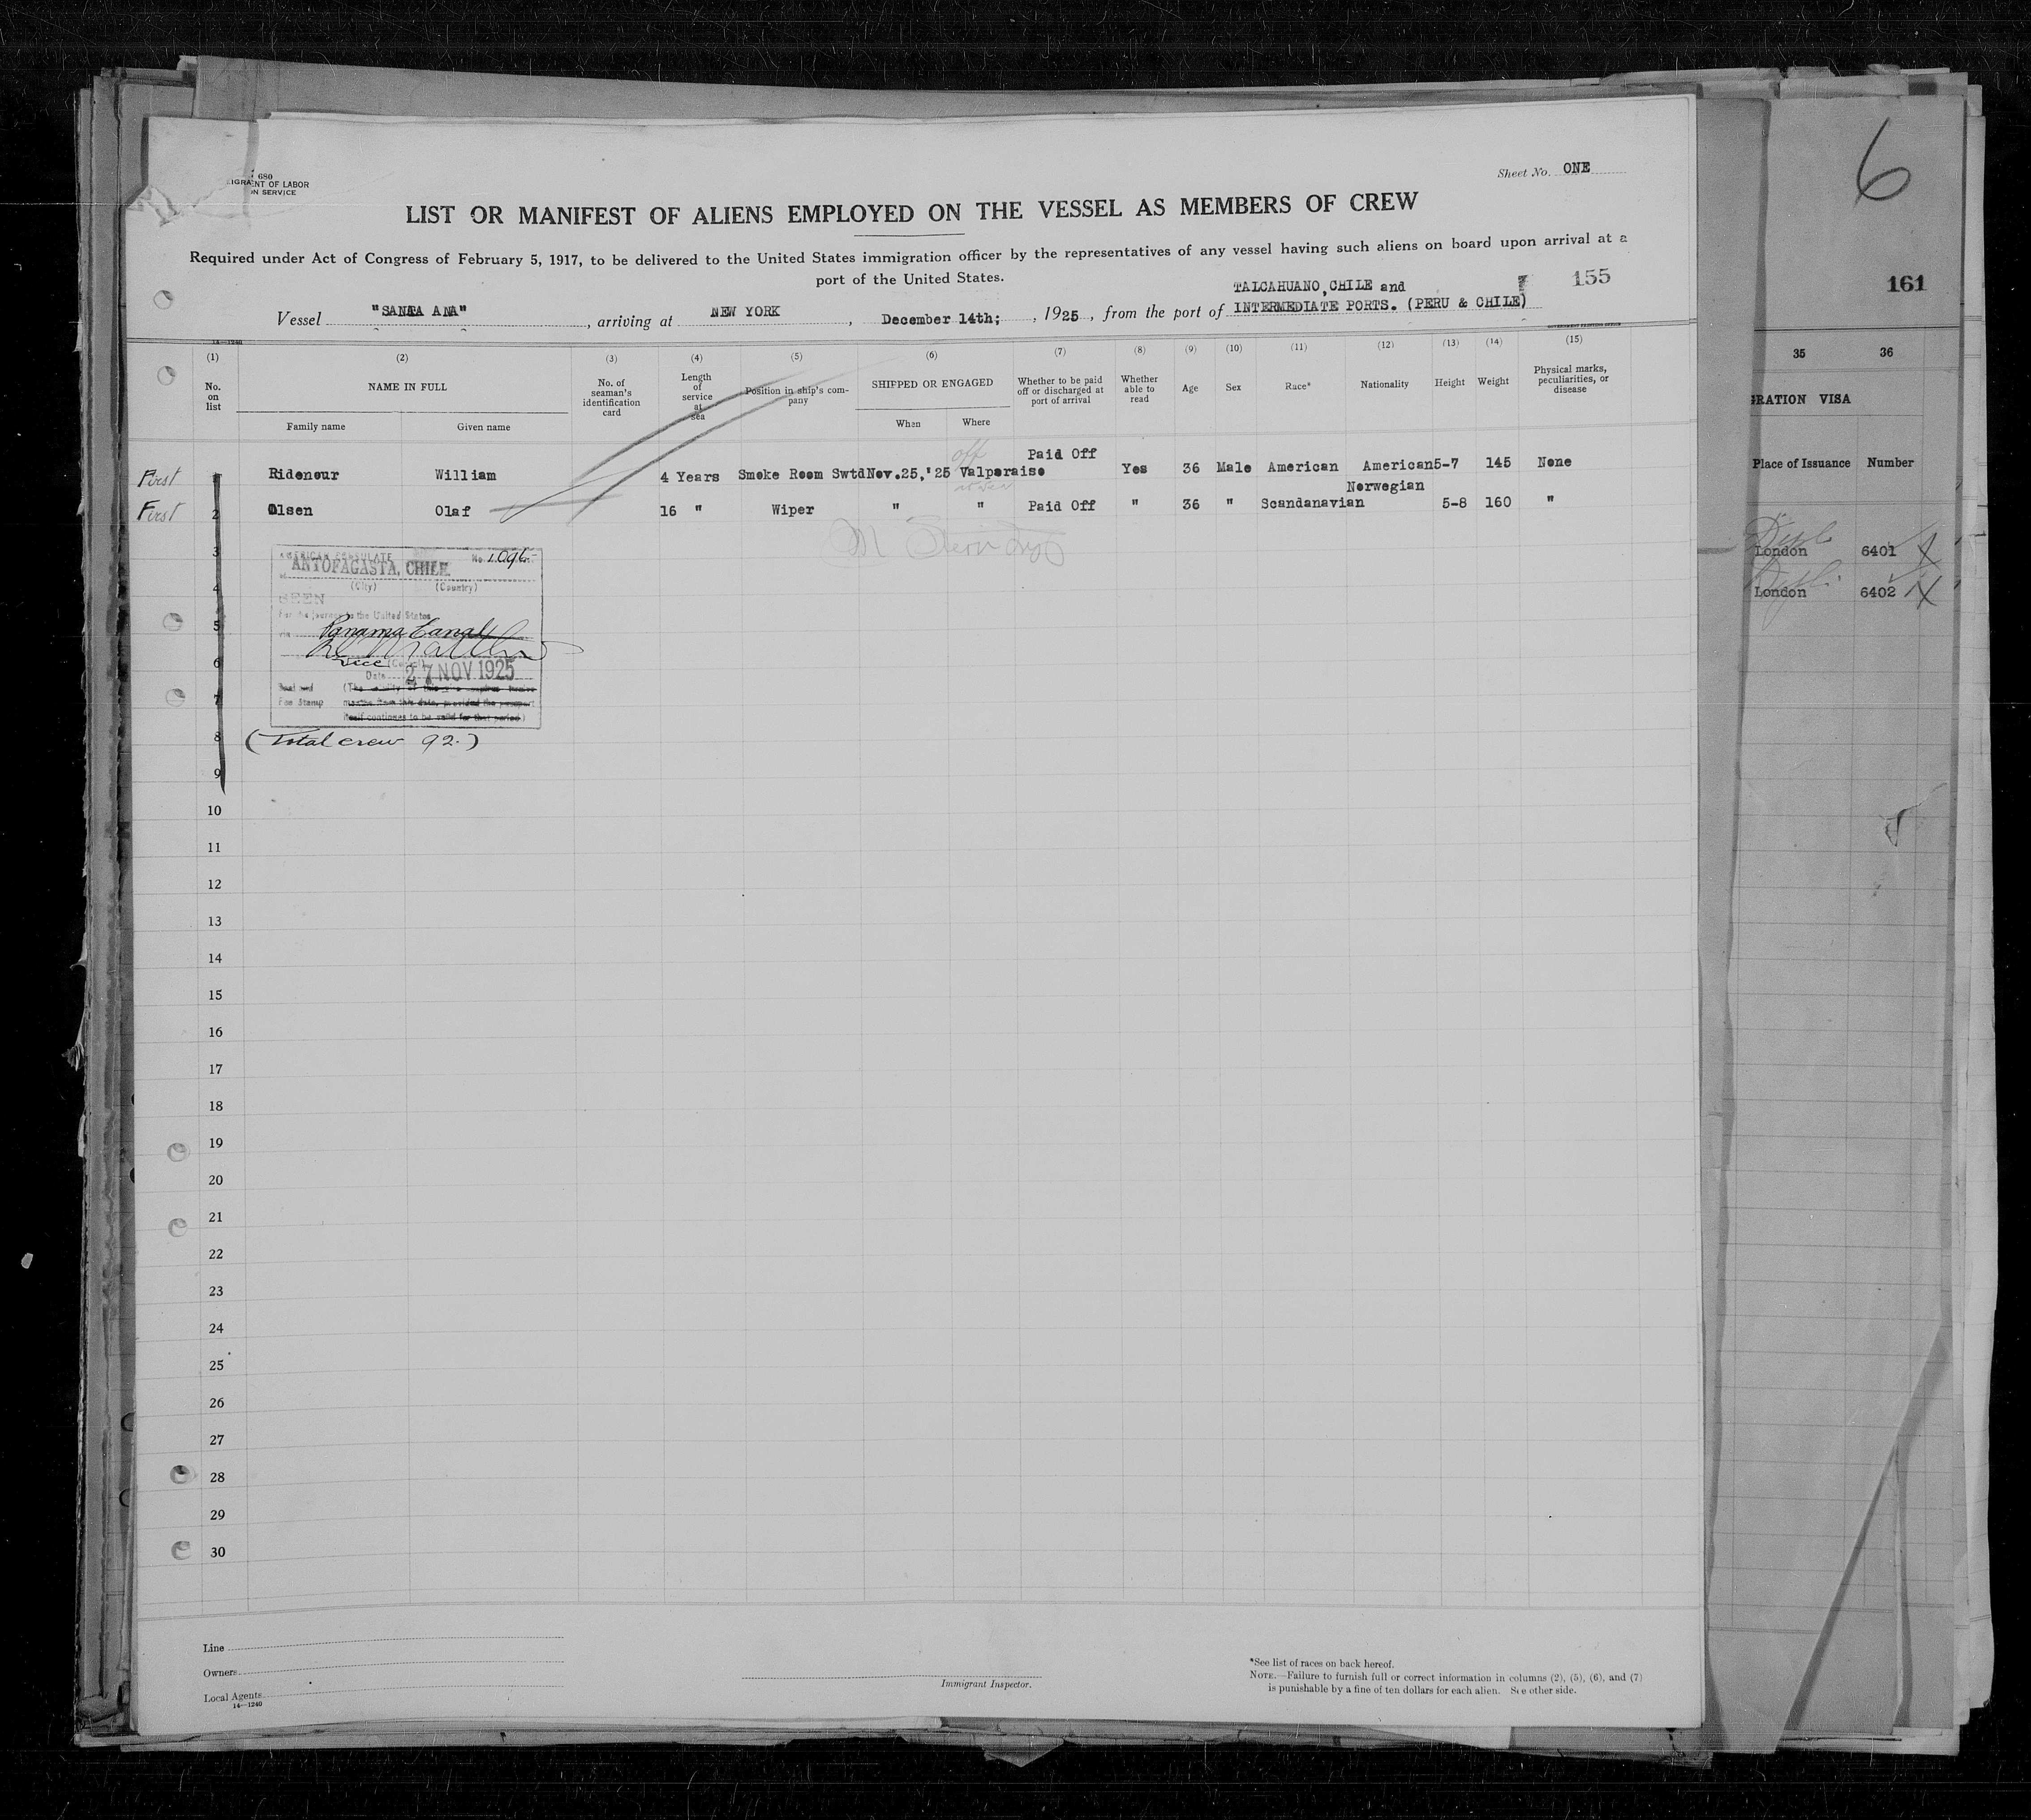 6
680
NT OF LABOR
N SERVICE
Sheet No. ONE
LIST OR MANIFEST OF ALIENS EMPLOYED ON THE VESSEL AS MEMBERS OF CREW
Required under Act of Congress of February 5, 1917, to be delivered to the United States immigration officer by the representatives of any vessel having such aliens on board upon arrival at a
port of the United States.
155
161
TALCAHUANO, CHILE and
Vessel "SANTA ANA", arriving at NEW YORK, December 14th;, 1925, from the port of INTERMEDIATE PORTS. (PERU & CHILE)
GOVERNMENT PRINTING OFFICE
14—1240
(1) (2) (3) (4) (5) (6) (7) (8) (9) (10) (11) (12) (13) (14) (15)
No. on list
NAME IN FULL
Family name Given name
No. of seaman's identification card
Length of service at sea
Position in ship's company
SHIPPED OR ENGAGED
When Where
Whether to be paid off or discharged at port of arrival
Whether able to read
Age
Sex
Race*
Nationality
Height
Weight
Physical marks, peculiarities, or disease
35 36
RATION VISA
Place of Issuance Number
off
First 1 Ridenour William 4 Years Smoke Room Swtd Nov.25,'25 Valparaiso Paid Off Yes 36 Male American American 5-7 145 None
First 2 Olsen Olaf 16 " Wiper " " Paid Off " 36 " Scandanavian Norwegian 5-8 160 "
London 6401
London 6402
3
4
5
6
7
8
9
AMERICAN CONSULATE No. 1096
ANTOFAGASTA, CHILE
(City) (Country)
SEEN
For the journey to the United States
via Panama Canal
Vice (Consul)
Date 27 NOV 1925
Seal and (The validity of this visa expires twelve
Fee Stamp months from this date, provided the passport
itself continues to be valid for that period)
(Total crew 92.)
10
11
12
13
14
15
16
17
18
19
20
21
22
23
24
25
26
27
28
29
30
Line
Owners
Local Agents
14—1240
Immigrant Inspector.
*See list of races on back hereof.
NOTE.—Failure to furnish full or correct information in columns (2), (5), (6), and (7)
is punishable by a fine of ten dollars for each alien. See other side.